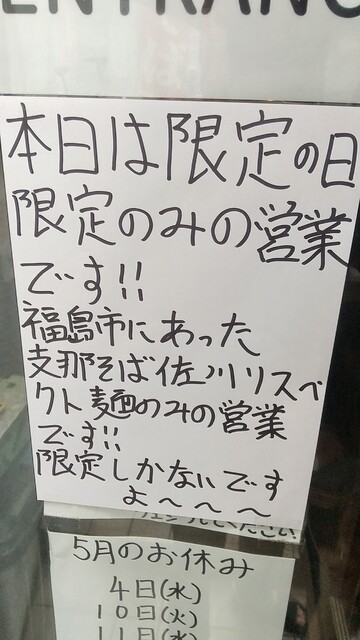 ENTRANC
本日は限定の日
限定のみの営業
です!!
福島市にあった
支那そば佐川リスペ
クト麺のみの営業
です!!
限定しかないです
よ〜〜〜
ください
5月のお休み
4日(水)
10日(火)
11日(水)